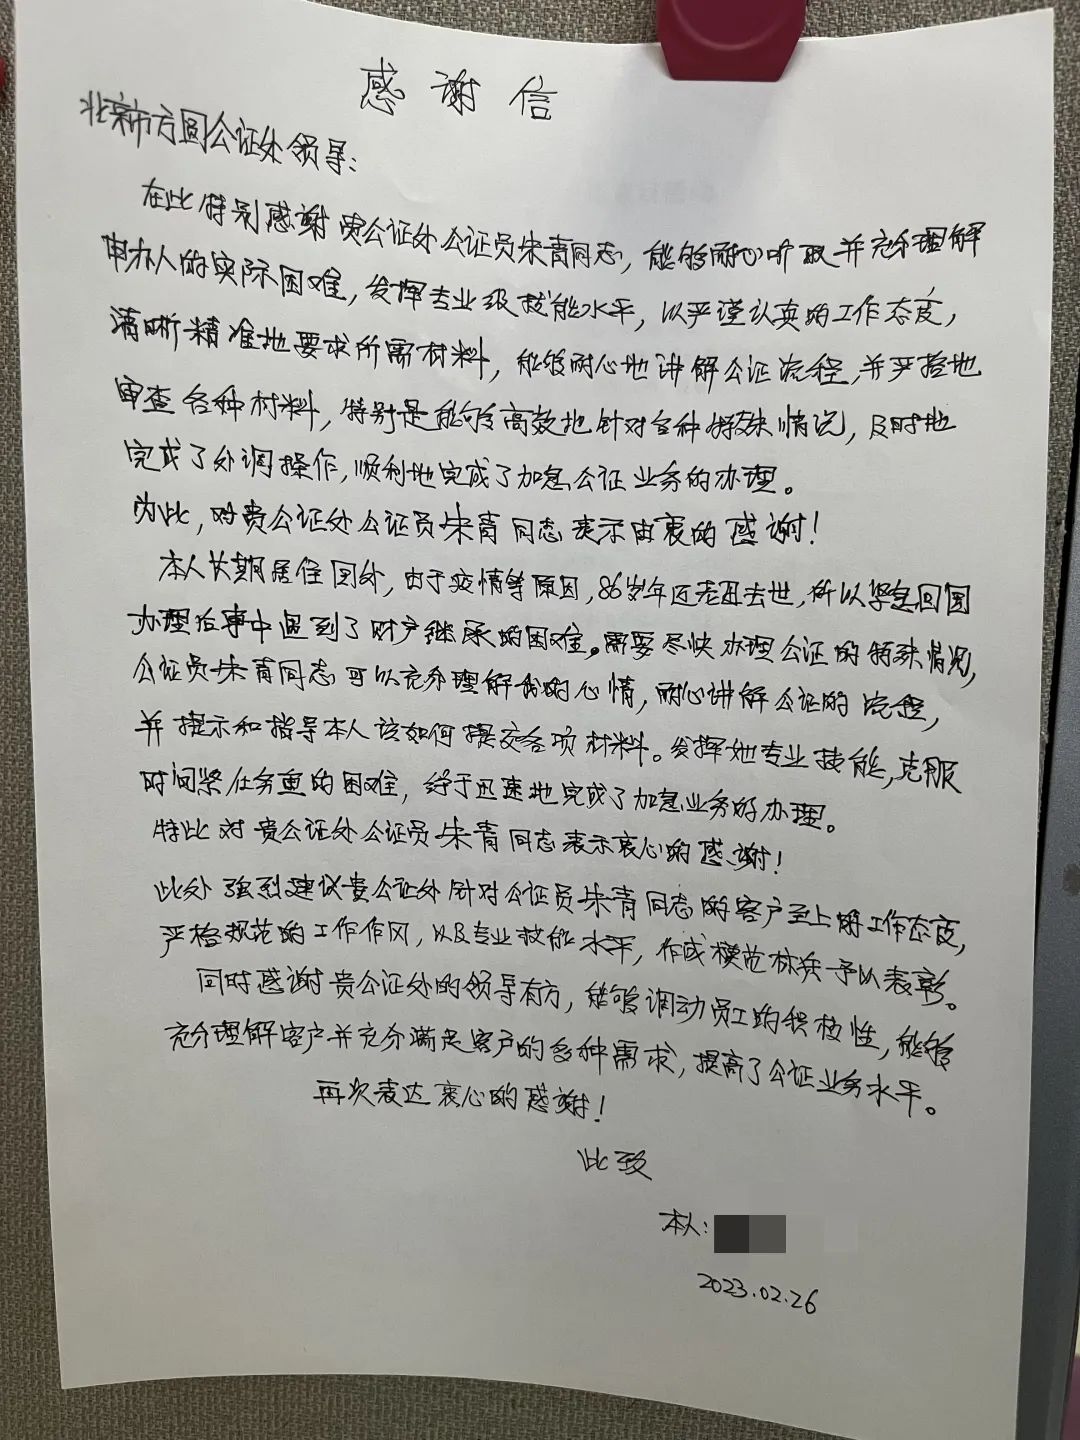 感谢信
北京市方圆公证处领导：
在此特别感谢贵公证处公证员朱青同志，能够耐心听取并充分理解
申办人的实际困难，发挥专业级技能水平，以严谨认真的工作态度，
清晰精准地要求所需材料，能够耐心地讲解公证流程，并严格地
审查各种材料，特别是能够高效地针对各种特殊情况，及时地
完成了外调操作，顺利地完成了加急公证业务的办理。
为此，对贵公证处公证员朱青同志表示由衷的感谢！
本人长期居住国外，由于疫情等原因，86岁年迈老母去世，所以紧急回国
办理后事中遇到了财产继承的困难。需要尽快办理公证的特殊情况，
公证员朱青同志可以充分理解我的心情，耐心讲解公证的流程，
并提示和指导本人该如何提交各项材料。发挥她专业技能，克服
时间紧任务重的困难，终于迅速地完成了加急业务的办理。
特此对贵公证处公证员朱青同志表示衷心的感谢！
此外强烈建议贵公证处针对公证员朱青同志的客户至上的工作态度，
严格规范的工作作风，以及专业技能水平，作成模范标兵予以表彰。
同时感谢贵公证处的领导有方，能够调动员工的积极性，能够
充分理解客户并充分满足客户的多种需求，提高了公证业务水平。
再次表达衷心的感谢！
此致
本人：
2023.02.26